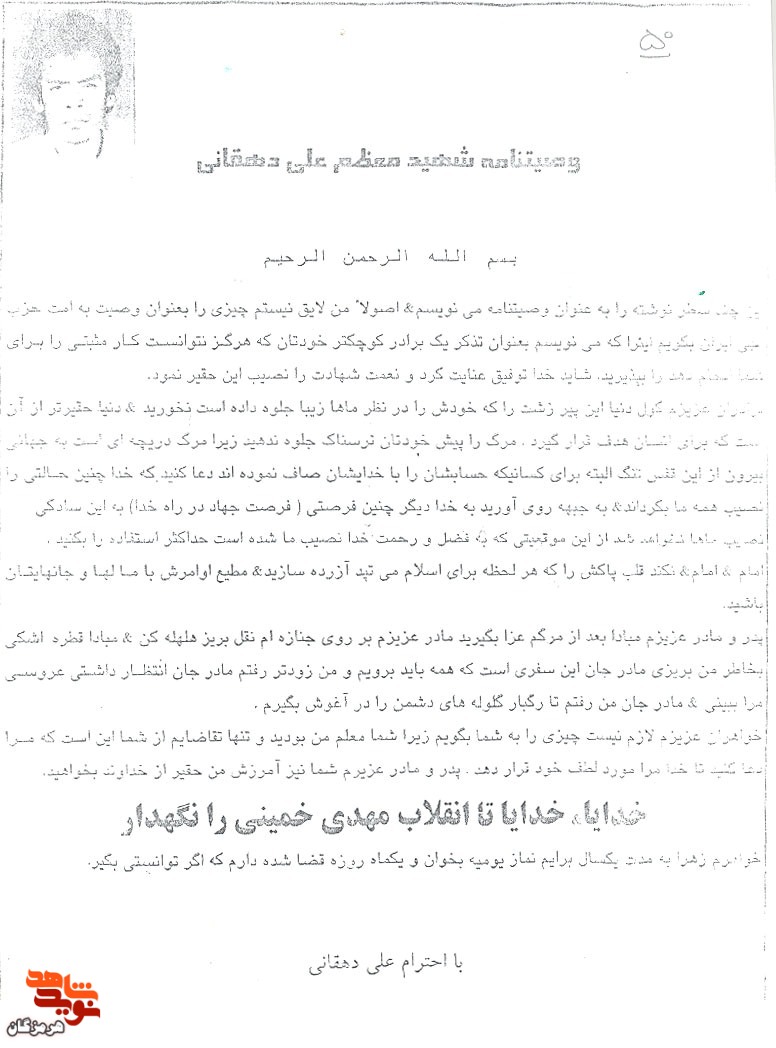 ۵۰
وصیتنامه شهید معظم علی دهقانی
بسم الله الرحمن الرحیم
چند سطر نوشته را به عنوان وصیتنامه می نویسم& اصولاً من لایق نیستم چیزی را بعنوان وصیت به امت حزب
ایران بگویم اینرا که می نویسم بعنوان تذکر یک برادر کوچکتر خودتان که هرگز نتوانست کار مثبتی را برای
شما انجام دهد را بپذیرید، شاید خدا توفیق عنایت کرد و نعمت شهادت را نصیب این حقیر نمود.
برادران عزیزم گول دنیا این پیر زشت را که خودش را در نظر ماها زیبا جلوه داده است نخورید & دنیا حقیرتر از آن
است که برای انسان هدف قرار گیرد . مرگ را پیش خودتان ترسناک جلوه ندهید زیرا مرگ دریچه ای است به جهانی
بیرون از این قفس تنگ البته برای کسانیکه حسابشان را با خدایشان صاف نموده اند دعا کنید که خدا چنین حالتی را
نصیب همه ما بگرداند& به جبهه روی آورید به خدا دیگر چنین فرصتی ( فرصت جهاد در راه خدا) به این سادگی
نصیب ماها نخواهد شد از این موقعیتی که به فضل و رحمت خدا نصیب ما شده است حداکثر استفاده را بکنید .
امام & امام& نکند قلب پاکش را که هر لحظه برای اسلام می تپد آزرده سازید& مطیع اوامرش با مالها و جانهایتان
باشید.
پدر و مادر عزیزم مبادا بعد از مرگم عزا بگیرید مادر عزیزم بر روی جنازه ام نقل بریز هلهله کن & مبادا قطره اشکی
بخاطر من بریزی مادر جان این سفری است که همه باید برویم و من زودتر رفتم مادر جان انتظار داشتی عروسی
مرا ببینی & مادر جان من رفتم تا رگبار گلوله های دشمن را در آغوش بگیرم .
خواهران عزیزم لازم نیست چیزی را به شما بگویم زیرا شما معلم من بودید و تنها تقاضایم از شما این است که مرا
دعا کنید تا خدا مرا مورد لطف خود قرار دهد . پدر و مادر عزیزم شما نیز آمرزش من حقیر از خداوند بخواهید.
خدایا، خدایا تا انقلاب مهدی خمینی را نگهدار
خواهرم زهرا به مدت یکسال برایم نماز یومیه بخوان و یکماه روزه قضا شده دارم که اگر توانستی بگیر.
با احترام علی دهقانی
نوید شاهد
هرمزگان